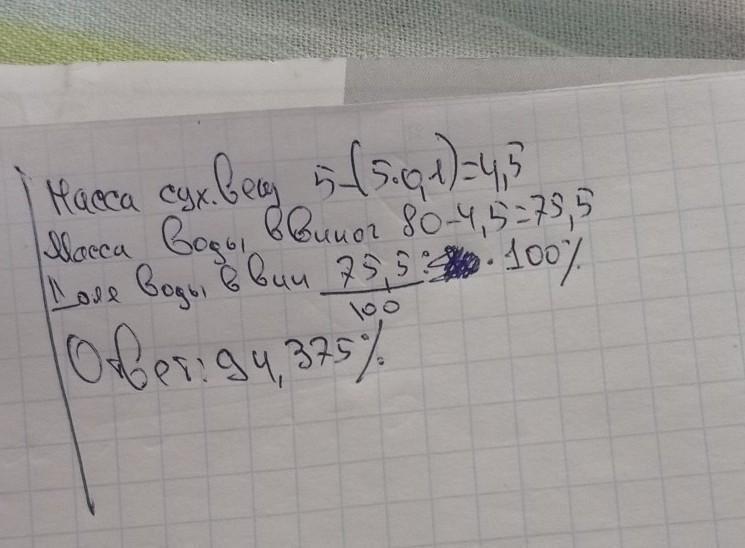 Масса сух. вещ 5-(5·0,1)=4,5
Масса воды в виног 80-4,5=75,5
Доля воды в вин 75,5: · 100%
100
Ответ: 94,375%